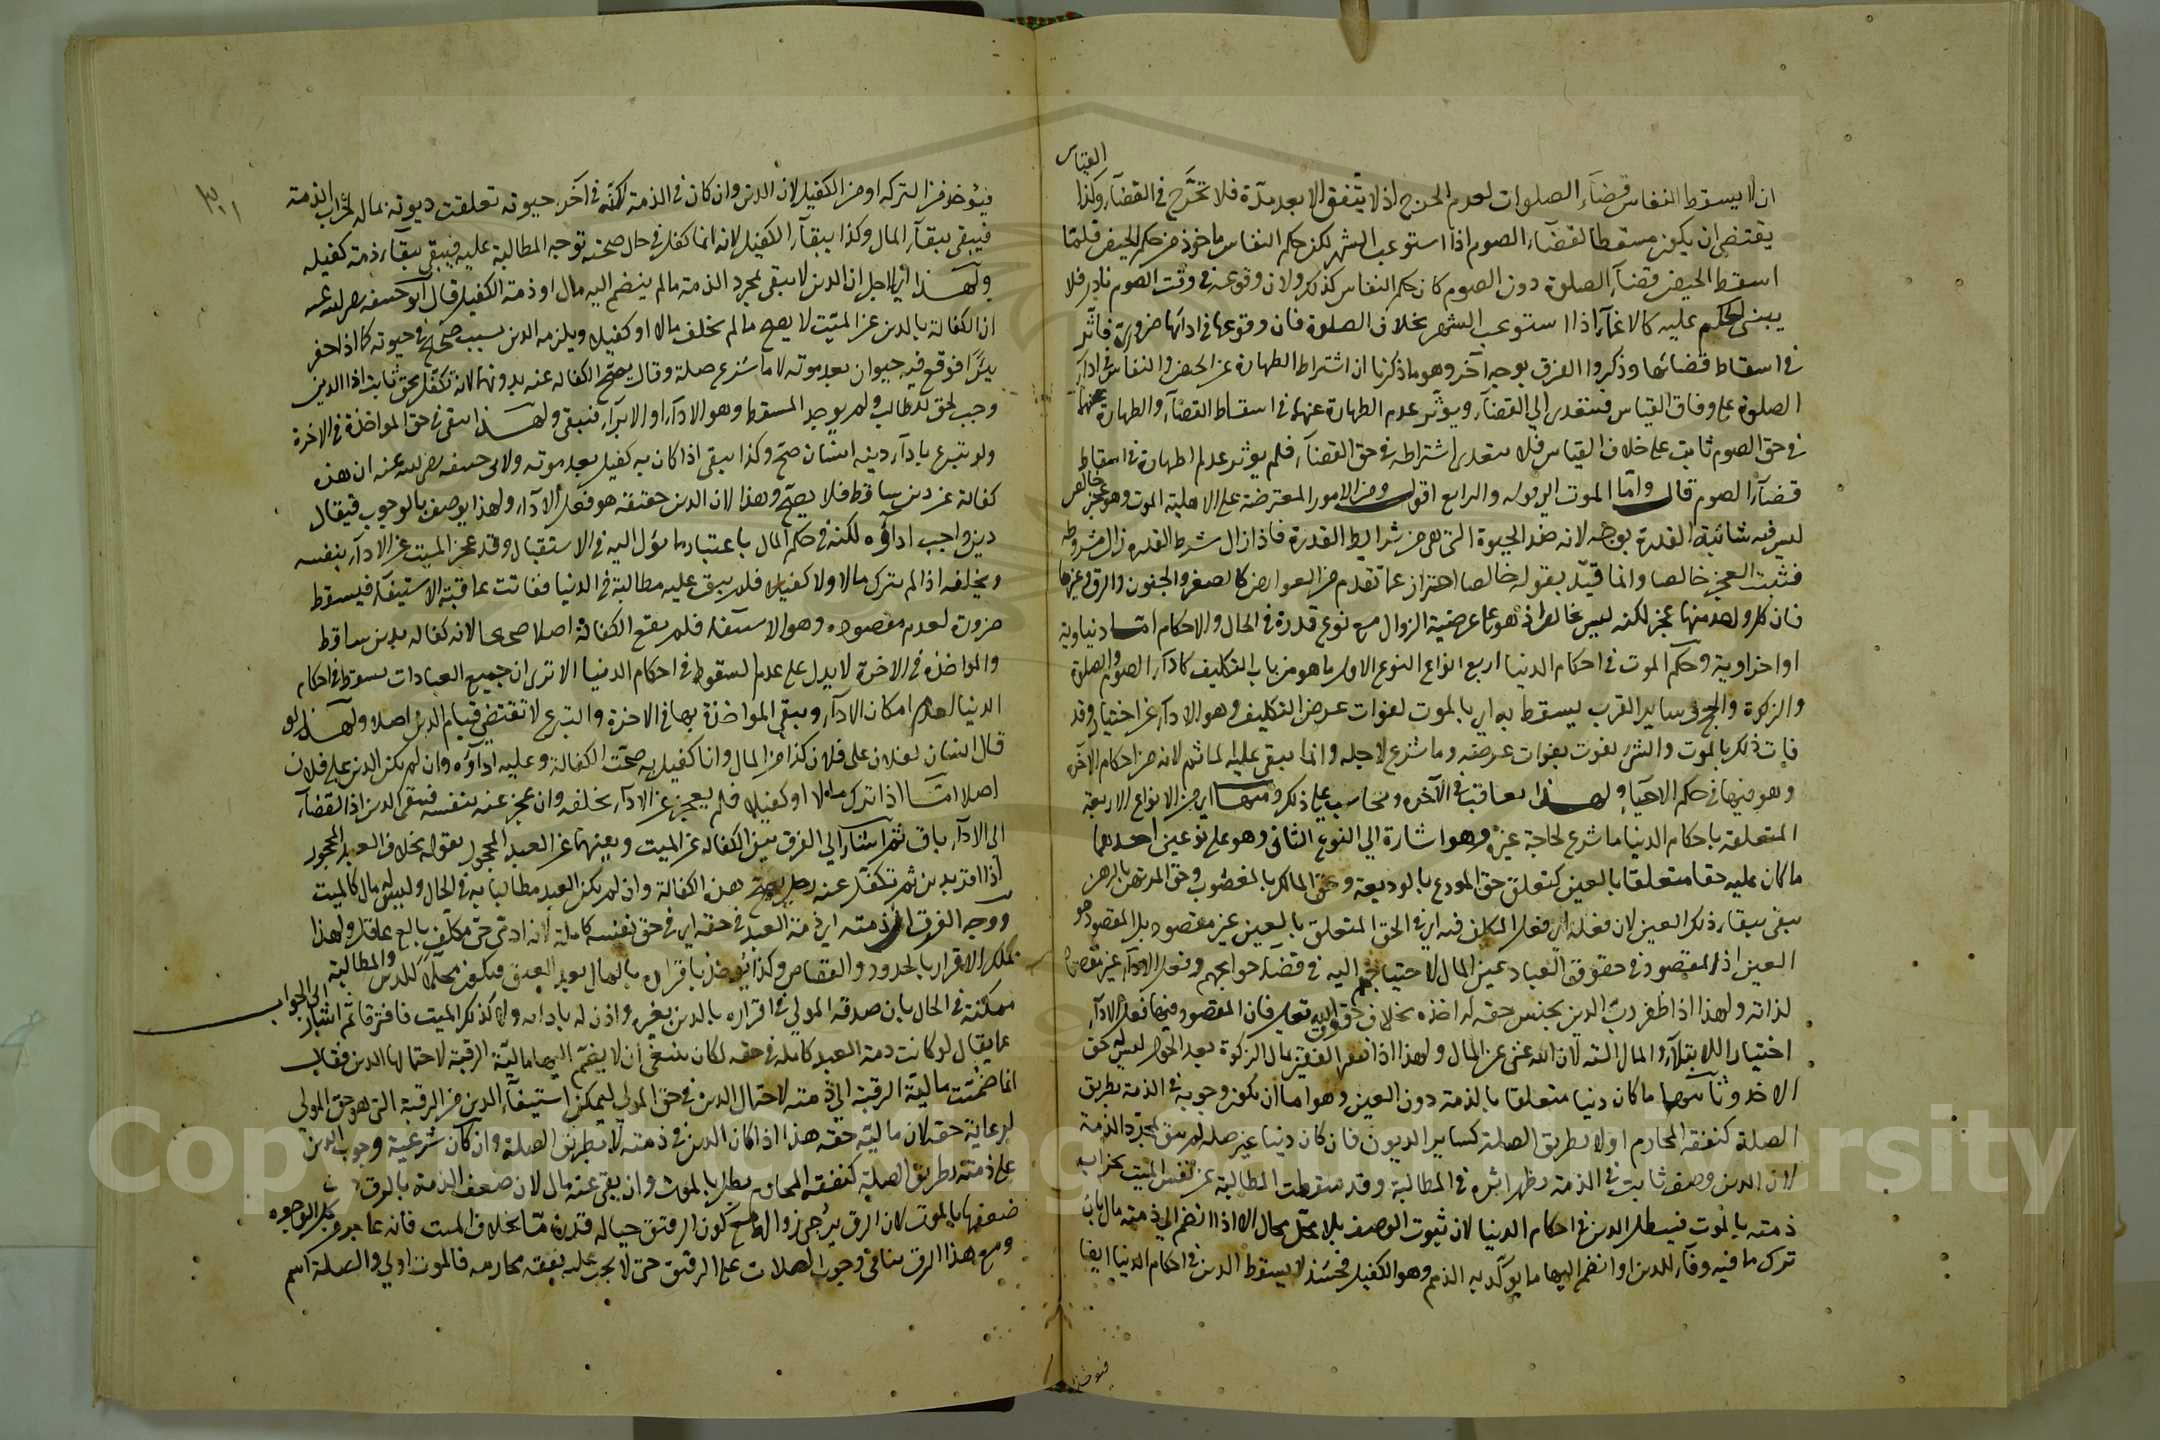 القياس
ان لا يسقط النفاس قضاء الصلوات لعدم الحرج اذ لا يتفق الا بعد مدة فلا تحرج في القضاء وكذا
يقتضى ان يكون مسقطا لقضاء الصوم اذا استوعب الشهر لكن حكم النفاس ماخوذ من حكم الحيض فلما
اسقط الحيض قضاء الصلوة دون الصوم كان حكم النفاس كذلك ولان وقوعه في وقت الصوم نادر فلا
يبنى الحكم عليه كالاغماء اذا استوعب الشهر بخلاف الصلوة فان وقوعها في ادائها ضرورة فاثر
في اسقاط قضائها وذكروا الفرق بوجه آخر وهو ما ذكرنا ان اشتراط الطهارة عن الحيض والنفاس في اداء
الصلوة على وفاق القياس فيتعدى الي القضاء ويؤثر عدم الطهارة عنهما في اسقاط القضاء والطهارة عنهما
في حق الصوم ثابت على خلاف القياس فلا يتعدى اشتراطه في حق القضاء فلم يؤثر عدم الطهارة في اسقاط
قضاء الصوم قال واما الموت الى قوله والرابع اقول ومن الامور المعترضة على الاهلية الموت وهو عجز خالص
ليس فيه شائبة القدرة بوجه لانه ضد الحيوة التي هي من شرايط القدرة فاذا زال شرط القدرة زال مشروطه
فثبت العجز خالصا وانما قيد بقوله خالصا احتراز عما تقدم من العوارض كالصغر والجنون والرق وغيرها
فان كل واحد منها عجز لكنه ليس بخالص اذ هو بما عرضية الزوال مع نوع قدرة في الحال والاحكام اما دنياوية
او اخراوية وحكم الموت في احكام الدنيا اربع انواع النوع الاول ما هو من باب التكليف كاداء الصوم والصلوة
والزكوة والحج وساير القرب يسقط به اي بالموت لفوات غرض التكليف وهو الاداء عن اختيار وقد
فات ذلك بالموت والشئ يفوت بفوات غرضه وما شرع لاجله وانما يبقى عليه الماثم لانه من احكام الآخرة
وهو فيها في حكم الاحياء ولهذا يعاقب في الآخرة ويحاسب على ذلك ومنها اي من الانواع الاربعة
المتعلقة باحكام الدنيا ما شرع لحاجة غيره وهو اشارة الي النوع الثاني وهو على نوعين احدهما
ما كان عليه حقا متعلقا بالعين كتعلق حق المودع بالوديعة وحق المالك بالمغصوب وحق المرتهن بالرهن
يبقى ببقاء ذلك العين لان فعله اي فعل المكلف فيه اي في الحق المتعلق بالعين غير مقصود بل المقصود هو
العين اذ المقصود في حقوق العباد عين المال لاحتياجهم اليه في قضاء حوايجهم وفعل الاداء غير مقصود
لذاته ولهذا اذا ظفر رب الدين بجنس حقه له اخذه بخلاف حقوق الله تعالى فان المقصود فيها فعل الاداء
اختيارا للابتلاء والمال آلته لان الله غنى عن المال ولهذا اذا ظفر الفقير بمال الزكوة بعد الحول ليس له حق
الاخذ وثانيهما ما كان دينا متعلقا بالذمة دون العين وهو اما ان يكون وجوبه في الذمة بطريق
الصلة كنفقة المحارم او لا بطريق الصلة كساير الديون فان كان دينا غير صلة لم يبق بمجرد الذمة
لان الدين وصف ثابت في الذمة يظهر اثره في المطالبة وقد سقطت المطالبة عن نفس الميت بخراب
ذمته بالموت فيسقط الدين في احكام الدنيا لان ثبوت الوصف بلا محل محال الا اذا انضم الي ذمته مال بان
ترك ما فيه وفاء للدين او انضم اليها ما يؤكد به الذمم وهو الكفيل فحينئذ لا يسقط الدين في احكام الدنيا ايضا
فيؤخذ
فيؤخذ من التركة او من الكفيل لان الدين وان كان في الذمة لكنه في آخر حيوته تعلقت ديونه بماله لخراب الذمة
فيبقى ببقاء المال وكذا ببقاء الكفيل لانه انما كفل في حال صحة توجه المطالبة عليه فيبقى ببقاء ذمة كفيله
ولهذا اي لاجل ان الدين لا يبقى بمجرد الذمة ما لم ينضم اليه مال او ذمة الكفيل قال ابو حنيفة رضى الله عنه
ان الكفالة بالدين عن الميت لا يصح ما لم يخلف مالا او كفيلا ويلزمه الدين بسبب صح في حيوته كما اذا حفر
بئرا فوقع فيه حيوان بعد موته لا ما شرع صلة وقالا يصح الكفالة عنه بدونهما لانه تكفل بحق ثابت اذ الدين
وجب لحق الطالب ولم يوجد المسقط وهو الاداء او الابراء فيبقى ولهذا يبقى في حق المواخذة في الاخرة
ولو تبرع باداء دينه انسان صح وكذا يبقى اذا كان به كفيل بعد موته ولابى حنيفة رضى الله عنه ان هذه
كفالة عن دين ساقط فلا يصح وهذا لان الدين حقيقة هو فعل الاداء ولهذا يوصف بالوجوب فيقال
دين واجب اداؤه لكنه في حكم المال باعتبار ما يؤل اليه في الاستقبال وقد عجز الميت عن الاداء بنفسه
وبخلفه اذا لم يترك مالا ولا كفيلا فلم يبق عليه مطالبة في الدنيا ففاتت عاقبة الاستيفاء فيسقط
ضرورة لعدم مقصوده وهو الاستيفاء فلم يقع الكفالة اصلا صحيحا لانه كفالة بدين ساقط
والمواخذة في الاخرة لا يدل على عدم السقوط في احكام الدنيا الا ترى ان جميع العبادات يسقط في احكام
الدنيا لعدم امكان الاداء ويبقى المواخذة بها في الاخرة والتبرع لا تقتضي قيام الدين اصلا ولهذا لو
قال انسان لفلان على فلان كذا من المال وانا كفيل به صحت الكفالة وعليه اداؤه وان لم يكن الدين على فلان
اصلا اما اذا ترك مالا او كفيلا فلم يعجز عن الاداء بخلفه وان عجز عنه بنفسه فيبقى الدين اذ القضاء
الى الاداء باق ثم اشار الي الفرق بين الكفالة عن الميت وبينهما عن العبد المحجور بقوله بخلاف العبد المحجور
اذا اقر بدين ثم تكفل عنه رجل يصح هذه الكفالة وان لم يكن العبد مطالبا به في الحال وليس له مال كالميت
ووجه الفرق ان ذمته اي ذمة العبد في حقه اي في حق نفسه كاملة لانه ادمى حى مكلف بالغ عاقل ولهذا
يملك الاقرار بالحدود والقصاص وكذا يؤخذ باقراره بالمال بعد العتق فيكون محلا للدين والمطالبة
ممكنة في الحال بان صدقه المولي في اقراره بالدين يغرم واذن له بادائه ولا كذلك الميت فافترقا ثم اشار الى الجواب
عما يقال لو كانت ذمة العبد كاملة في حقه لكان ينبغي ان لا ينضم اليها مالية الرقبة لاحتمالها الدين فقال
انما ضمنت مالية الرقبة الي ذمته لاحتمال الدين في حق المولي ليمكن استيفاء الدين من الرقبة التي هو حق المولي
لرعاية حقه لان ماليته حقه هذا اذا كان الدين في ذمته لا بطريق الصلة وان كان شرعية وجوب الدين
على ذمته بطريق الصلة كنفقة المحارم يبطل بالموت وان بقى عنه مال لان ضعف الذمة بالرق دون
ضعفها بالموت لان الرق يرجى زوالها مع كون الرقيق حيا له قدرة ما بخلاف الميت فانه عاجز من كل الوجوه
ومع هذا الرق ينافى وجوب الصلات على الرقيق حتى لا يجب عليه نفقة محارمه فالموت اولى والصلة اسم